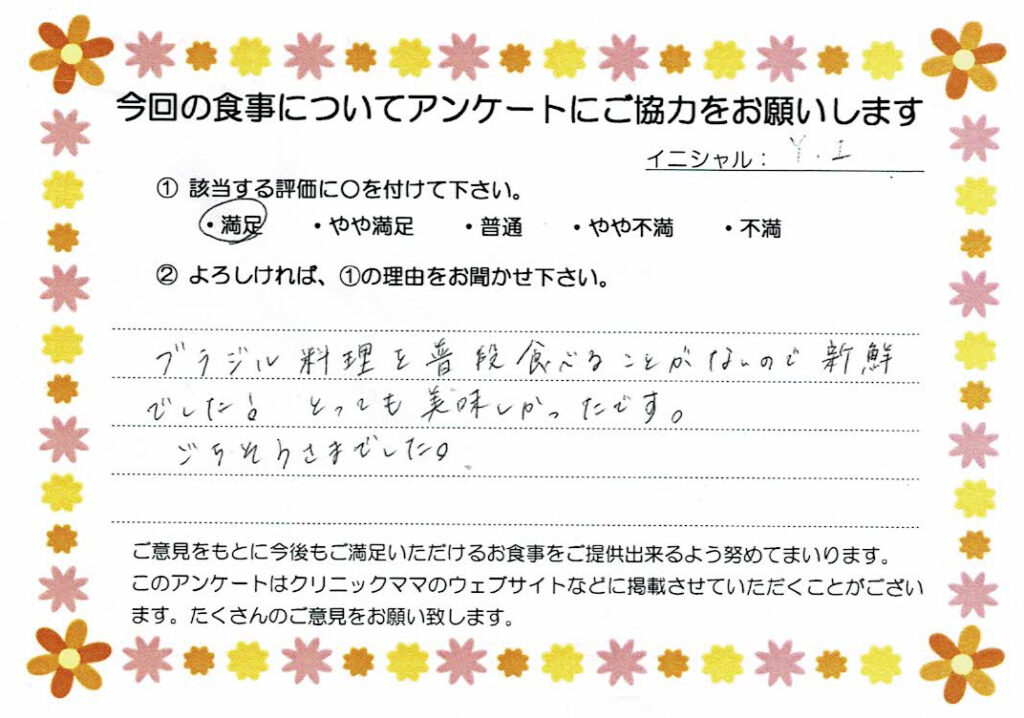 今回の食事についてアンケートにご協力をお願いします
イニシャル： Y.I
① 該当する評価に〇を付けて下さい。
・満足 ・やや満足 ・普通 ・やや不満 ・不満
② よろしければ、①の理由をお聞かせ下さい。
ブラジル料理を普段食べることがないので新鮮
でした！ とっても美味しかったです。
ごちそうさまでした。
ご意見をもとに今後もご満足いただけるお食事をご提供出来るよう努めてまいります。
このアンケートはクリニックママのウェブサイトなどに掲載させていただくことがござい
ます。たくさんのご意見をお願い致します。